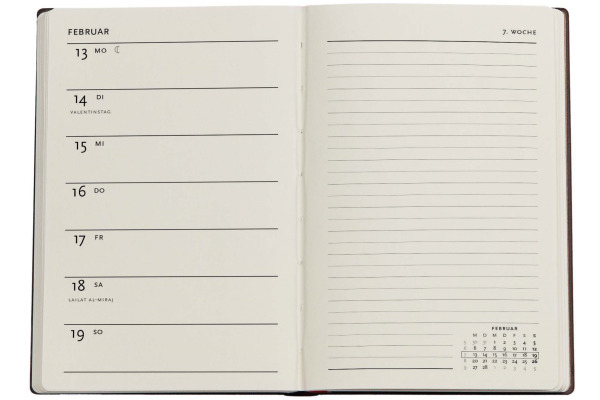 FEBRUAR
13 MO ☾
14 DI
VALENTINSTAG
15 MI
16 DO
17 FR
18 SA
LAILAT AL-MIRAJ
19 SO
7. WOCHE
FEBRUAR
M D M D F S S
5 30 31 1 2 3 4 5
6 6 7 8 9 10 11 12
7 13 14 15 16 17 18 19
8 20 21 22 23 24 25 26
9 27 28 1 2 3 4 5